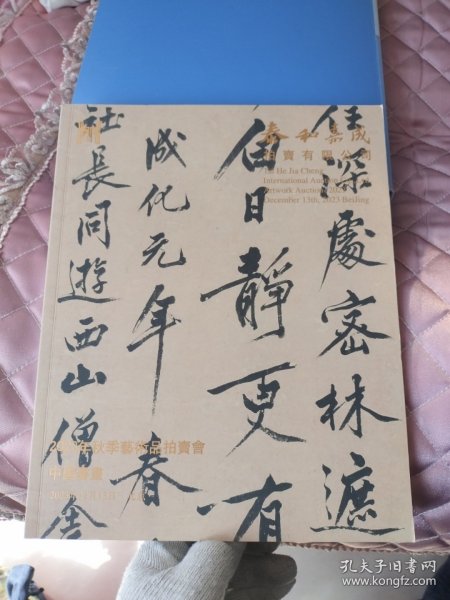 泰和嘉成
拍賣有限公司
Tai He Jia Cheng
International Auction
Artwork Auction
December 13th, 2023 Beijing
深處密林遮
日靜更有
成化元年春
社長同遊西山僧舍
年秋季藝術品拍賣會
中國書畫
孔夫子旧书网
www.kongfz.com